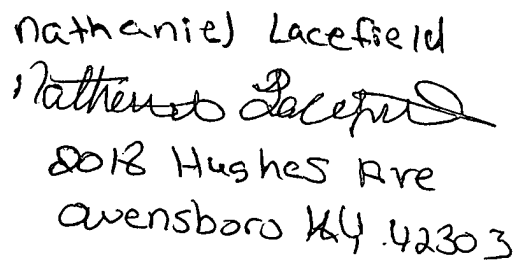 Nathaniel Lacefield
Nathaniel Lacefield
2018 Hughes Ave
Owensboro KY 42303